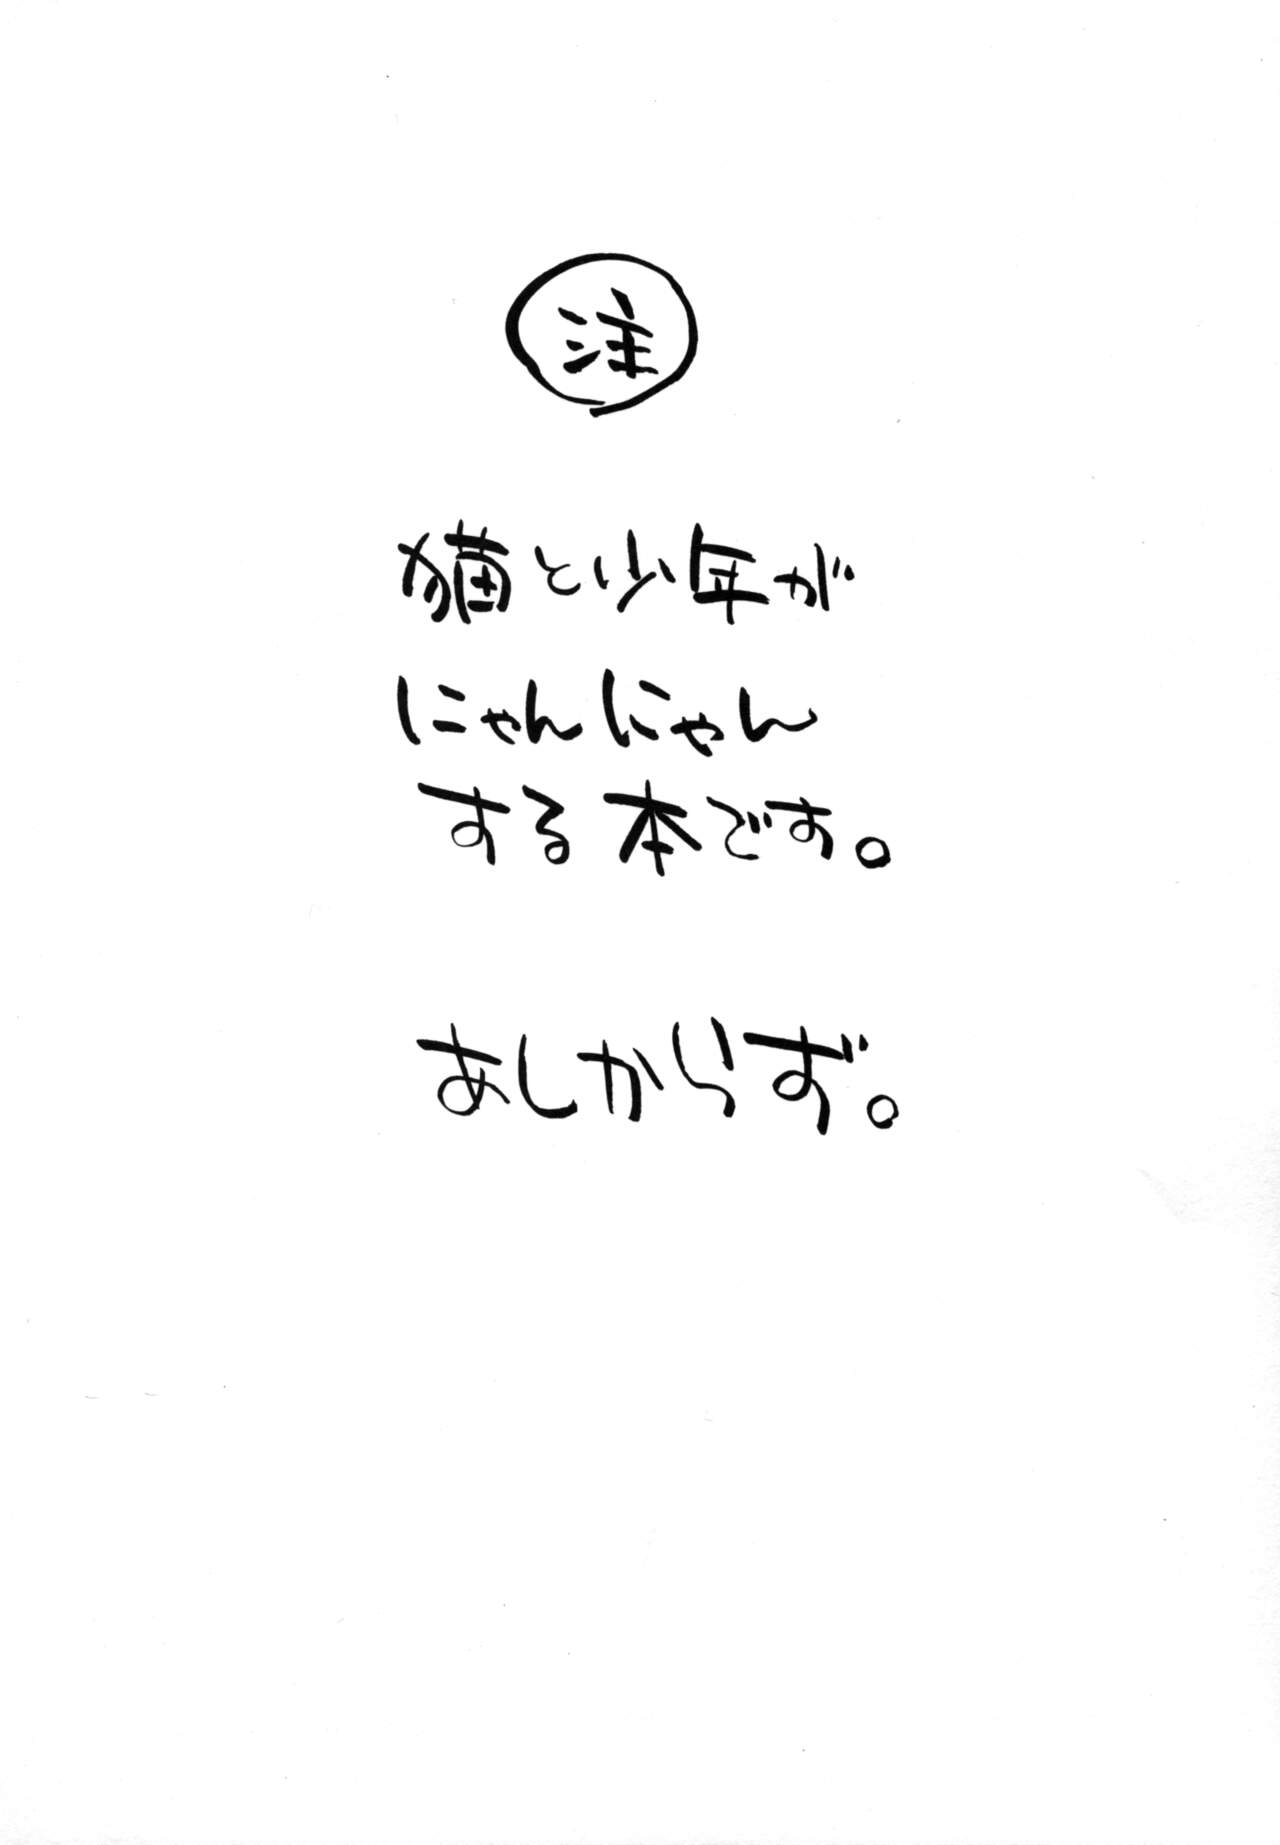 注
猫と少年が
にゃんにゃん
する本です。
あしからず。